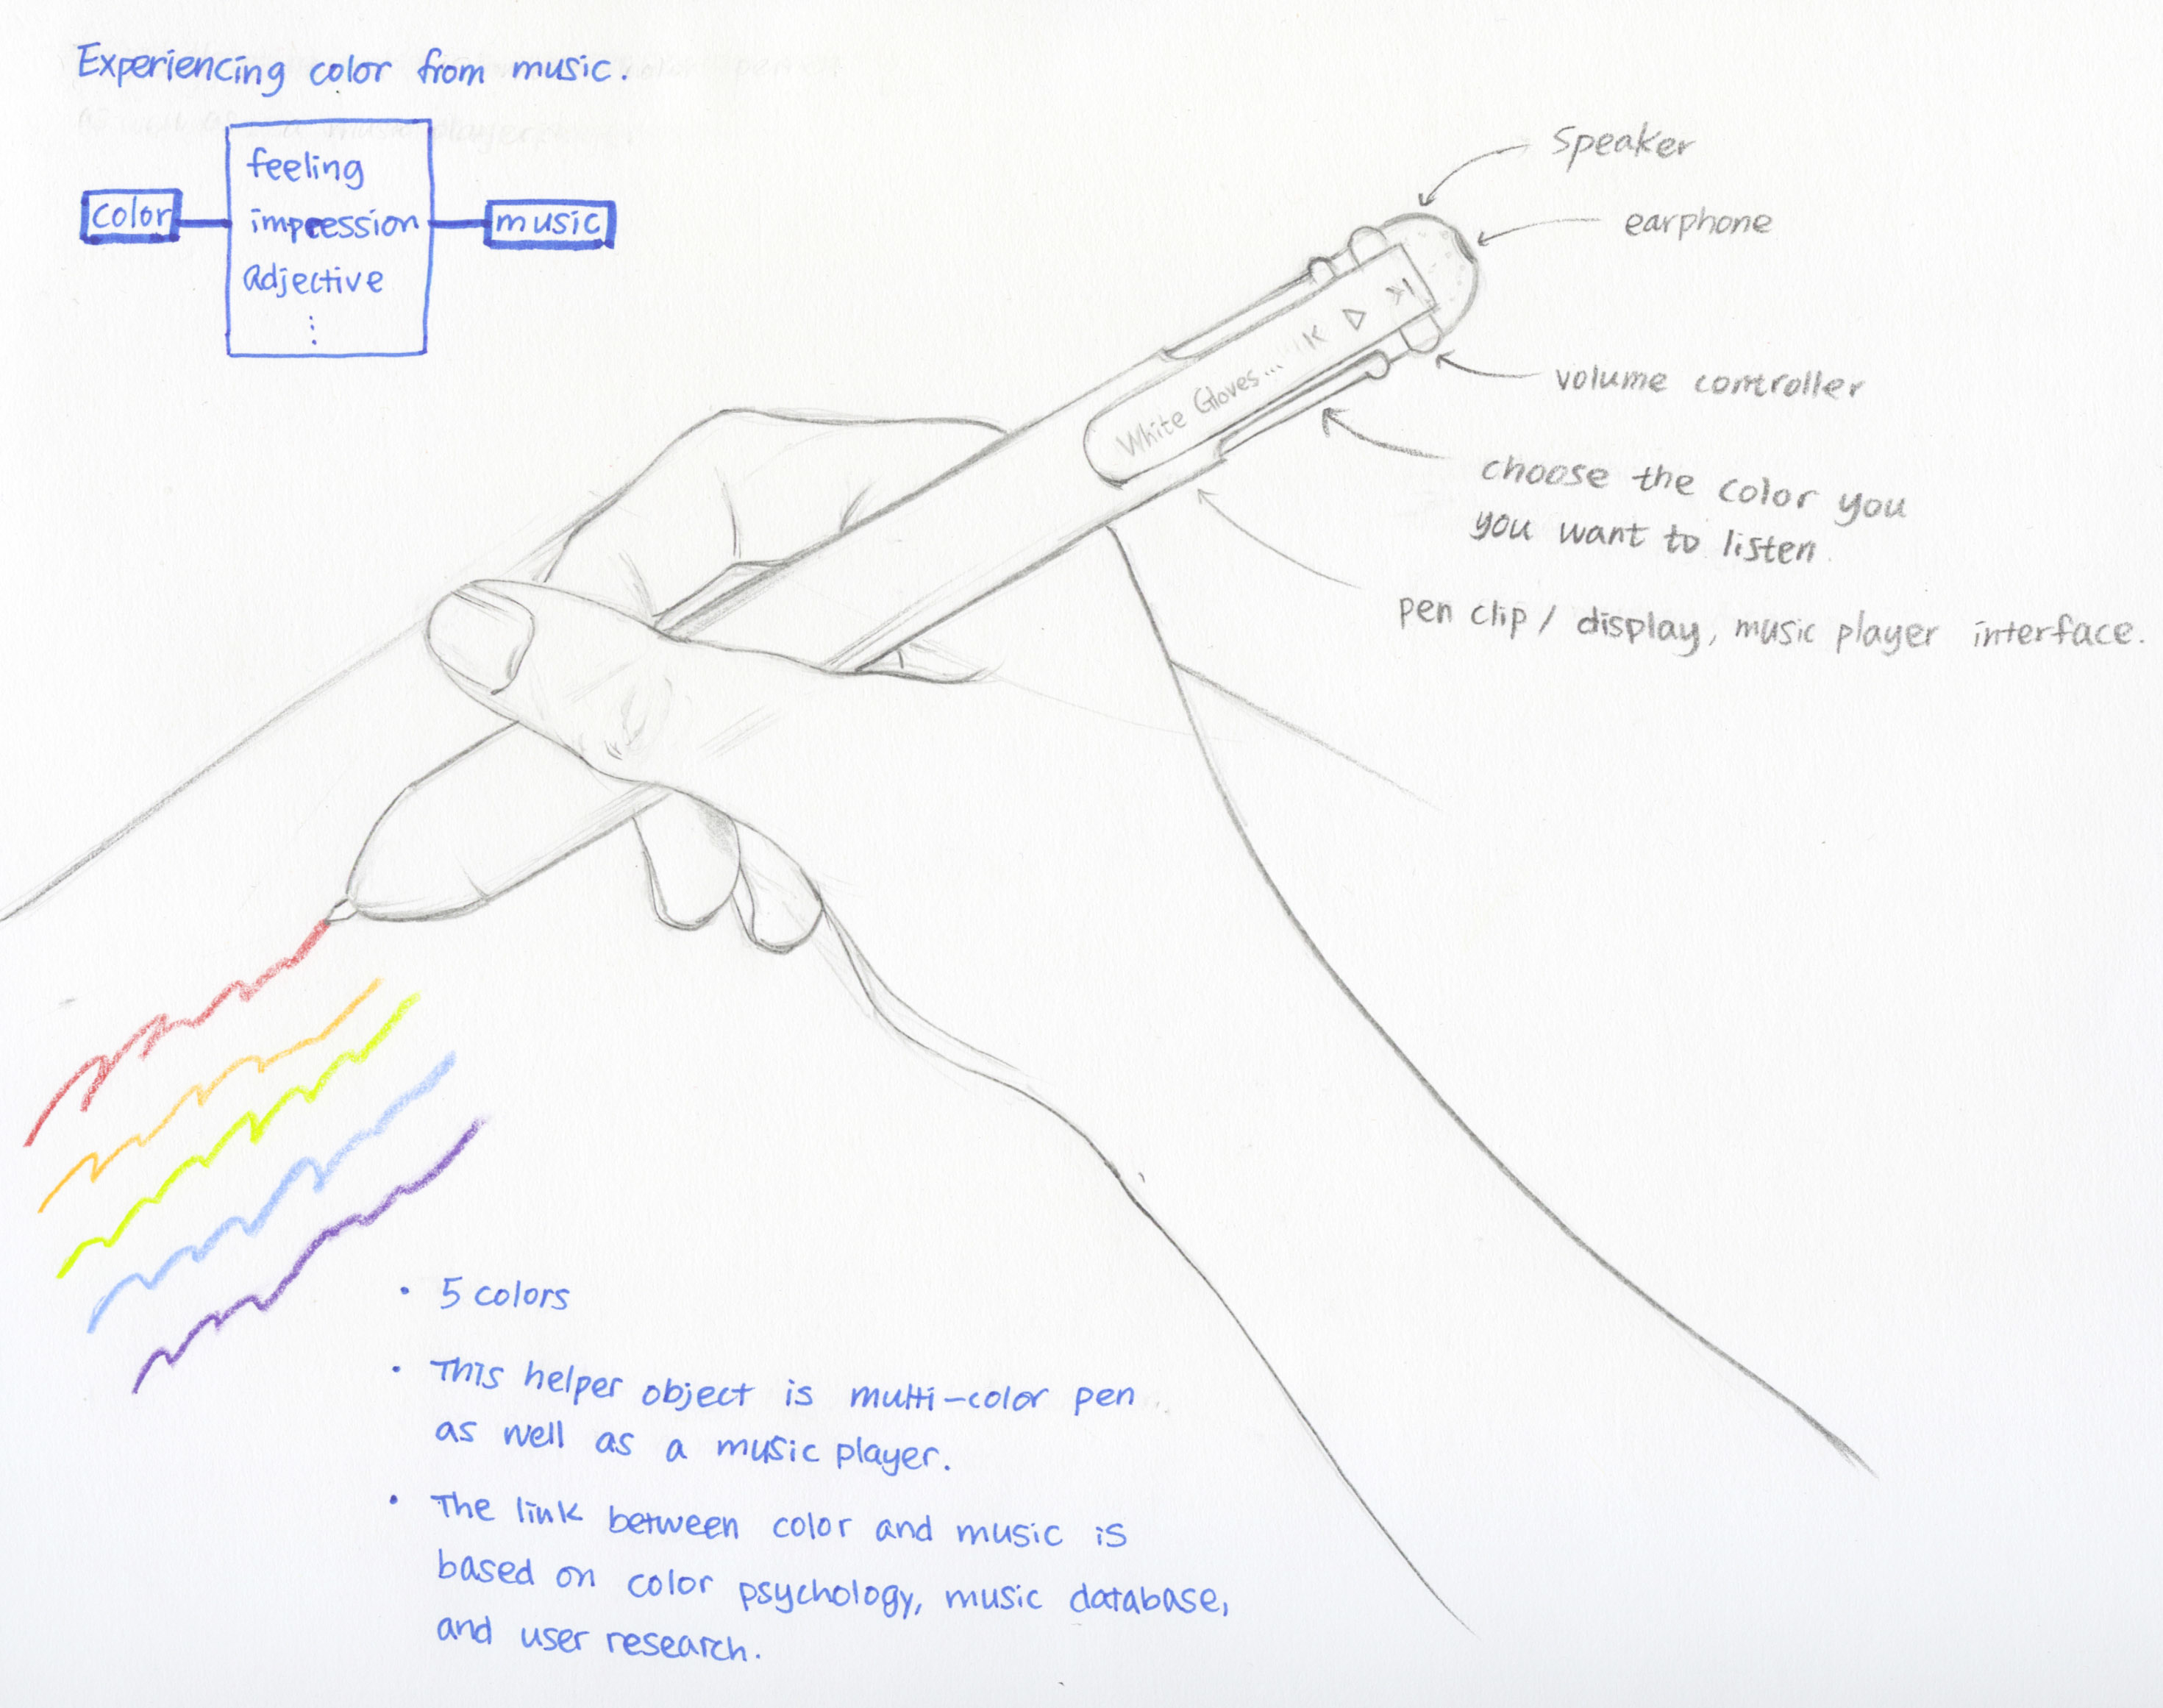 Experiencing color from music.
color
feeling
impression
adjective
⋮
music
speaker
earphone
volume controller
choose the color you
you want to listen.
pen clip / display, music player interface.
White Gloves...
• 5 colors
• This helper object is multi-color pen
as well as a music player.
• The link between color and music is
based on color psychology, music database,
and user research.